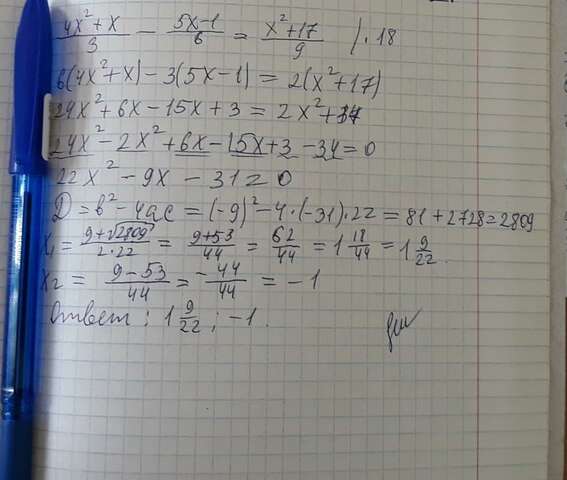 (4x²+x)/3 − (5x−1)/6 = (x²+17)/9 /·18
6(4x²+x)−3(5x−1)=2(x²+17)
24x²+6x−15x+3=2x²+34
24x²−2x²+6x−15x+3−34=0
22x²−9x−31=0
D=b²−4ac=(−9)²−4·(−31)·22=81+2728=2809
x₁=(9+√2809)/(2·22)=(9+53)/44=62/44=1 18/44=1 9/22.
x₂=(9−53)/44=−44/44=−1
Ответ: 1 9/22; −1.